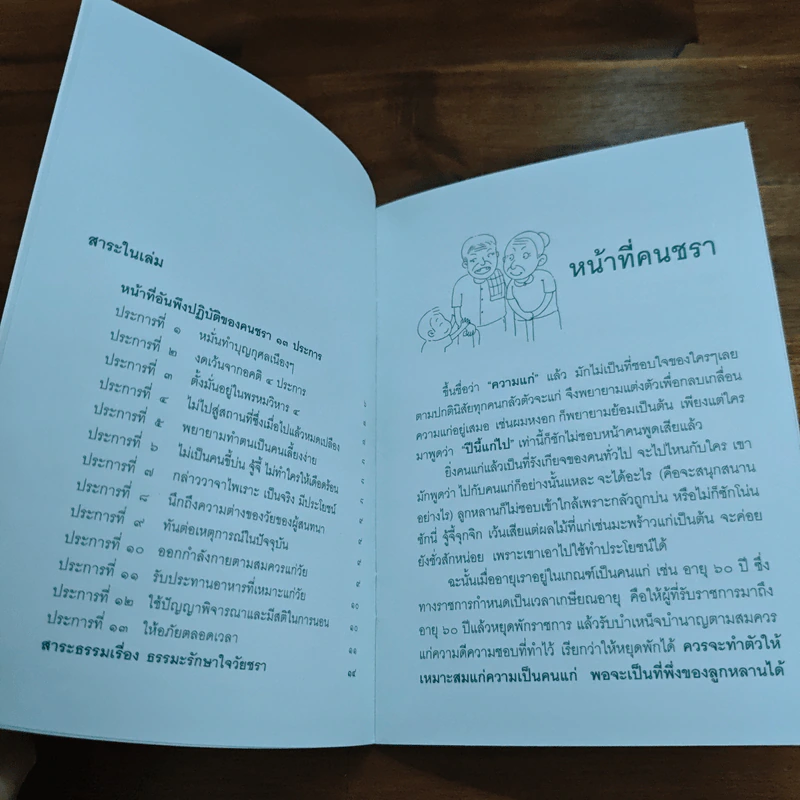 สาระในเล่ม
หน้าที่อันพึงปฏิบัติของคนชรา ๑๓ ประการ
ประการที่ ๑ หมั่นทำบุญกุศลเนืองๆ
ประการที่ ๒ งดเว้นจากอคติ ๔ ประการ
ประการที่ ๓ ตั้งมั่นอยู่ในพรหมวิหาร ๔
ประการที่ ๔ ไม่ไปสู่สถานที่ซึ่งเมื่อไปแล้วหมดเปลือง
ประการที่ ๕ พยายามทำตนเป็นคนเลี้ยงง่าย
ประการที่ ๖ ไม่เป็นคนขี้บ่น จู้จี้ ไม่ทำใครให้เดือดร้อน
ประการที่ ๗ กล่าววาจาไพเราะ เป็นจริง มีประโยชน์
ประการที่ ๘ นึกถึงความต่างของวัยของผู้สนทนา
ประการที่ ๙ ทันต่อเหตุการณ์ในปัจจุบัน
ประการที่ ๑๐ ออกกำลังกายตามสมควรแก่วัย
ประการที่ ๑๑ รับประทานอาหารที่เหมาะแก่วัย ๑๐
ประการที่ ๑๒ ใช้ปัญญาพิจารณาและมีสติในการนอน ๑๐
ประการที่ ๑๓ ให้อภัยตลอดเวลา ๑๑
สาระธรรมเรื่อง ธรรมะรักษาใจวัยชรา ๑๔
หน้าที่คนชรา
ขึ้นชื่อว่า "ความแก่" แล้ว มักไม่เป็นที่ชอบใจของใครๆเลย
ตามปกตินิสัยทุกคนกลัวตัวจะแก่ จึงพยายามแต่งตัวเพื่อกลบเกลื่อน
ความแก่อยู่เสมอ เช่นผมหงอก ก็พยายามย้อมเป็นต้น เพียงแต่ใคร
มาพูดว่า "ปีนี้แก่ไป" เท่านี้ก็ชักไม่ชอบหน้าคนพูดเสียแล้ว
ยิ่งคนแก่แล้วเป็นที่รังเกียจของคนทั่วไป จะไปไหนกับใคร เขา
มักพูดว่า ไปกับคนแก่ก็อย่างนั้นแหละ จะได้อะไร (คือจะสนุกสนาน
อย่างไร) ลูกหลานก็ไม่ชอบเข้าใกล้เพราะกลัวถูกบ่น หรือไม่ก็ซักโน่น
ซักนี่ จู้จี้จุกจิก เว้นเสียแต่ผลไม้ที่แก่เช่นมะพร้าวแก่เป็นต้น จะค่อย
ยังชั่วสักหน่อย เพราะเขาเอาไปใช้ทำประโยชน์ได้
ฉะนั้นเมื่ออายุเราอยู่ในเกณฑ์เป็นคนแก่ เช่น อายุ ๖๐ ปี ซึ่ง
ทางราชการกำหนดเป็นเวลาเกษียณอายุ คือให้ผู้ที่รับราชการมาถึง
อายุ ๖๐ ปีแล้วหยุดพักราชการ แล้วรับบำเหน็จบำนาญตามสมควร
แก่ความดีความชอบที่ทำไว้ เรียกว่าให้หยุดพักได้ ควรจะทำตัวให้
เหมาะสมแก่ความเป็นคนแก่ พอจะเป็นที่พึ่งของลูกหลานได้